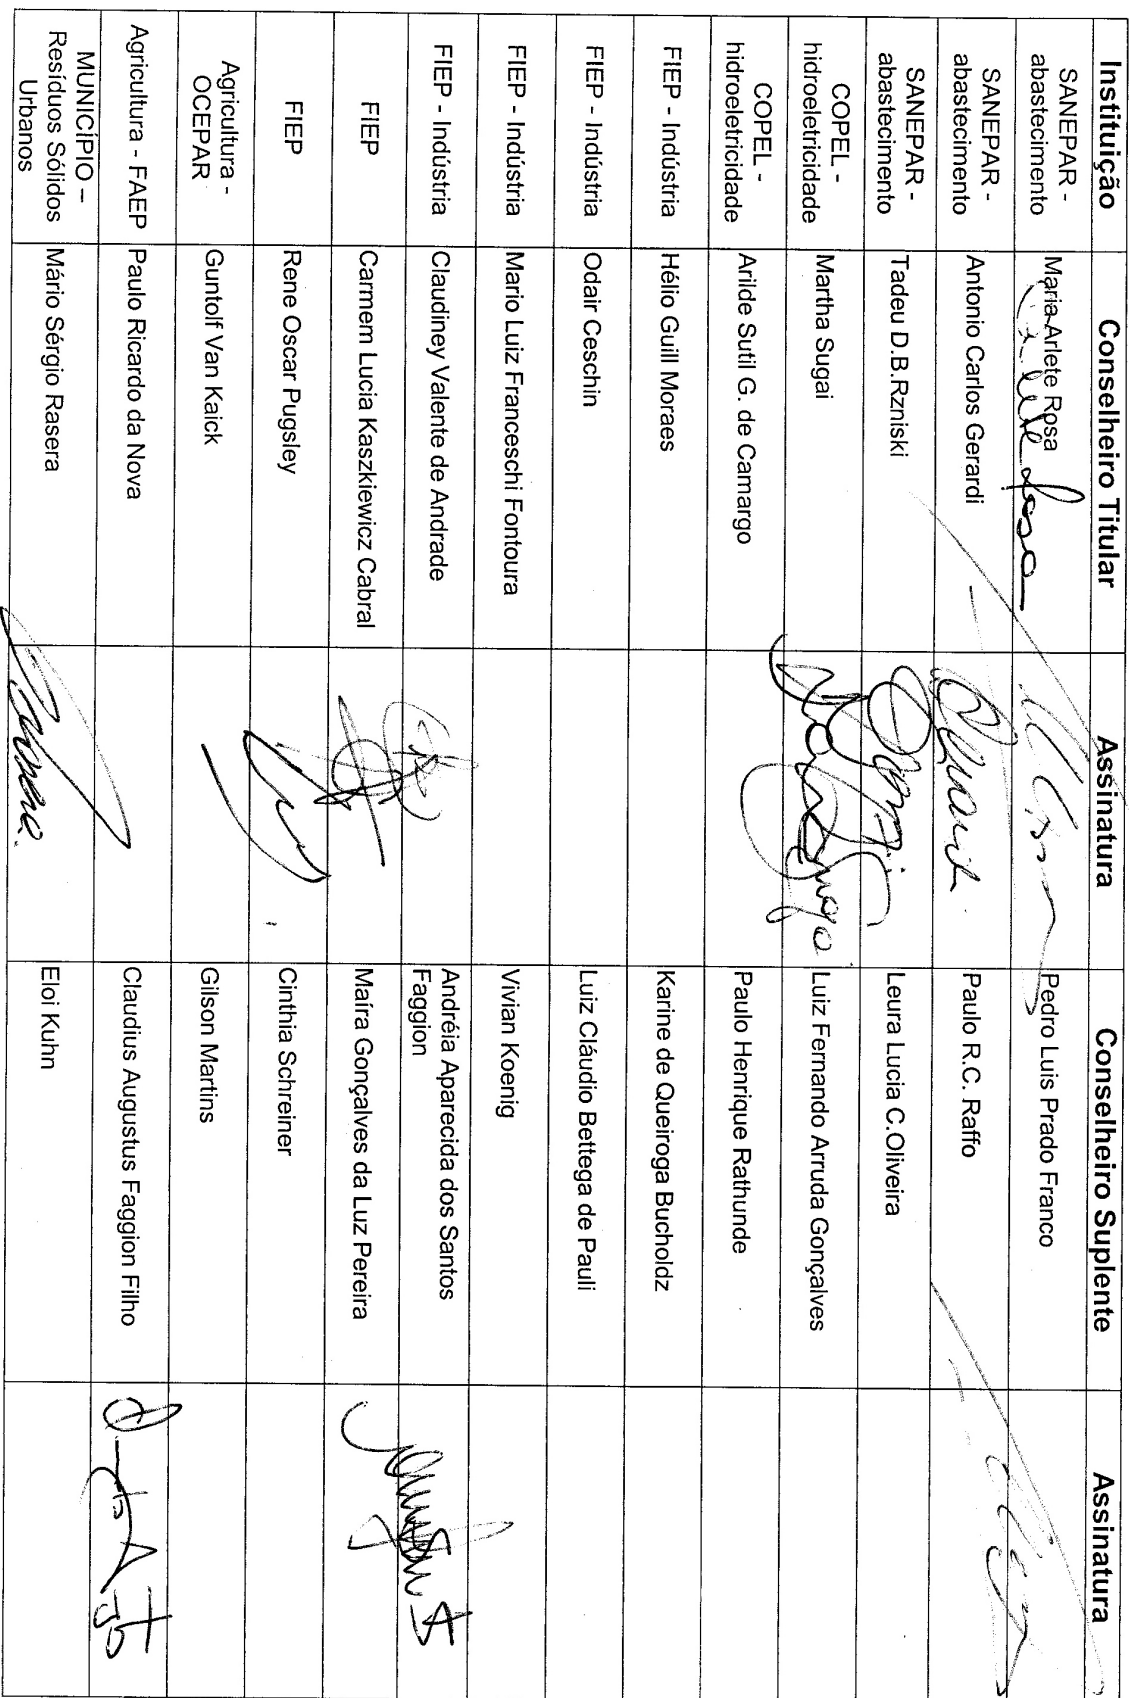 Instituição Conselheiro Titular Assinatura Conselheiro Suplente Assinatura
SANEPAR -
abastecimento Maria Arlete Rosa Pedro Luis Prado Franco
SANEPAR -
abastecimento Antonio Carlos Gerardi Paulo R.C. Raffo
SANEPAR -
abastecimento Tadeu D.B.Rzniski Leura Lucia C.Oliveira
COPEL -
hidroeletricidade Martha Sugai Luiz Fernando Arruda Gonçalves
COPEL -
hidroeletricidade Arilde Sutil G. de Camargo Paulo Henrique Rathunde
FIEP - Indústria Hélio Guill Moraes Karine de Queiroga Bucholdz
FIEP - Indústria Odair Ceschin Luiz Cláudio Bettega de Pauli
FIEP - Indústria Mario Luiz Franceschi Fontoura Vivian Koenig
FIEP - Indústria Claudiney Valente de Andrade Andréia Aparecida dos Santos
Faggion
FIEP Carmem Lucia Kaszkiewicz Cabral Maíra Gonçalves da Luz Pereira
FIEP Rene Oscar Pugsley Cinthia Schreiner
Agricultura -
OCEPAR Guntolf Van Kaick Gilson Martins
Agricultura - FAEP Paulo Ricardo da Nova Claudius Augustus Faggion Filho
MUNICÍPIO –
Resíduos Sólidos
Urbanos Mário Sérgio Rasera Eloi Kuhn